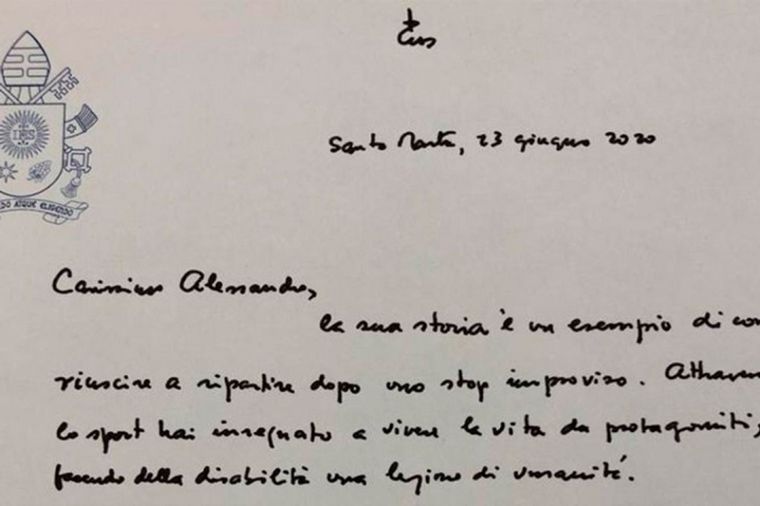 IHS
DO ATQUE ELIGENDO
Santa Marta, 23 giugno 2020
Carissimo Alessandro,
la sua storia è un esempio di com
riuscire a ripartire dopo uno stop improviso. Attraver
lo sport hai insegnato a vivere la vita da protagoniti,
facendo della disabilità una lezione di umanità.